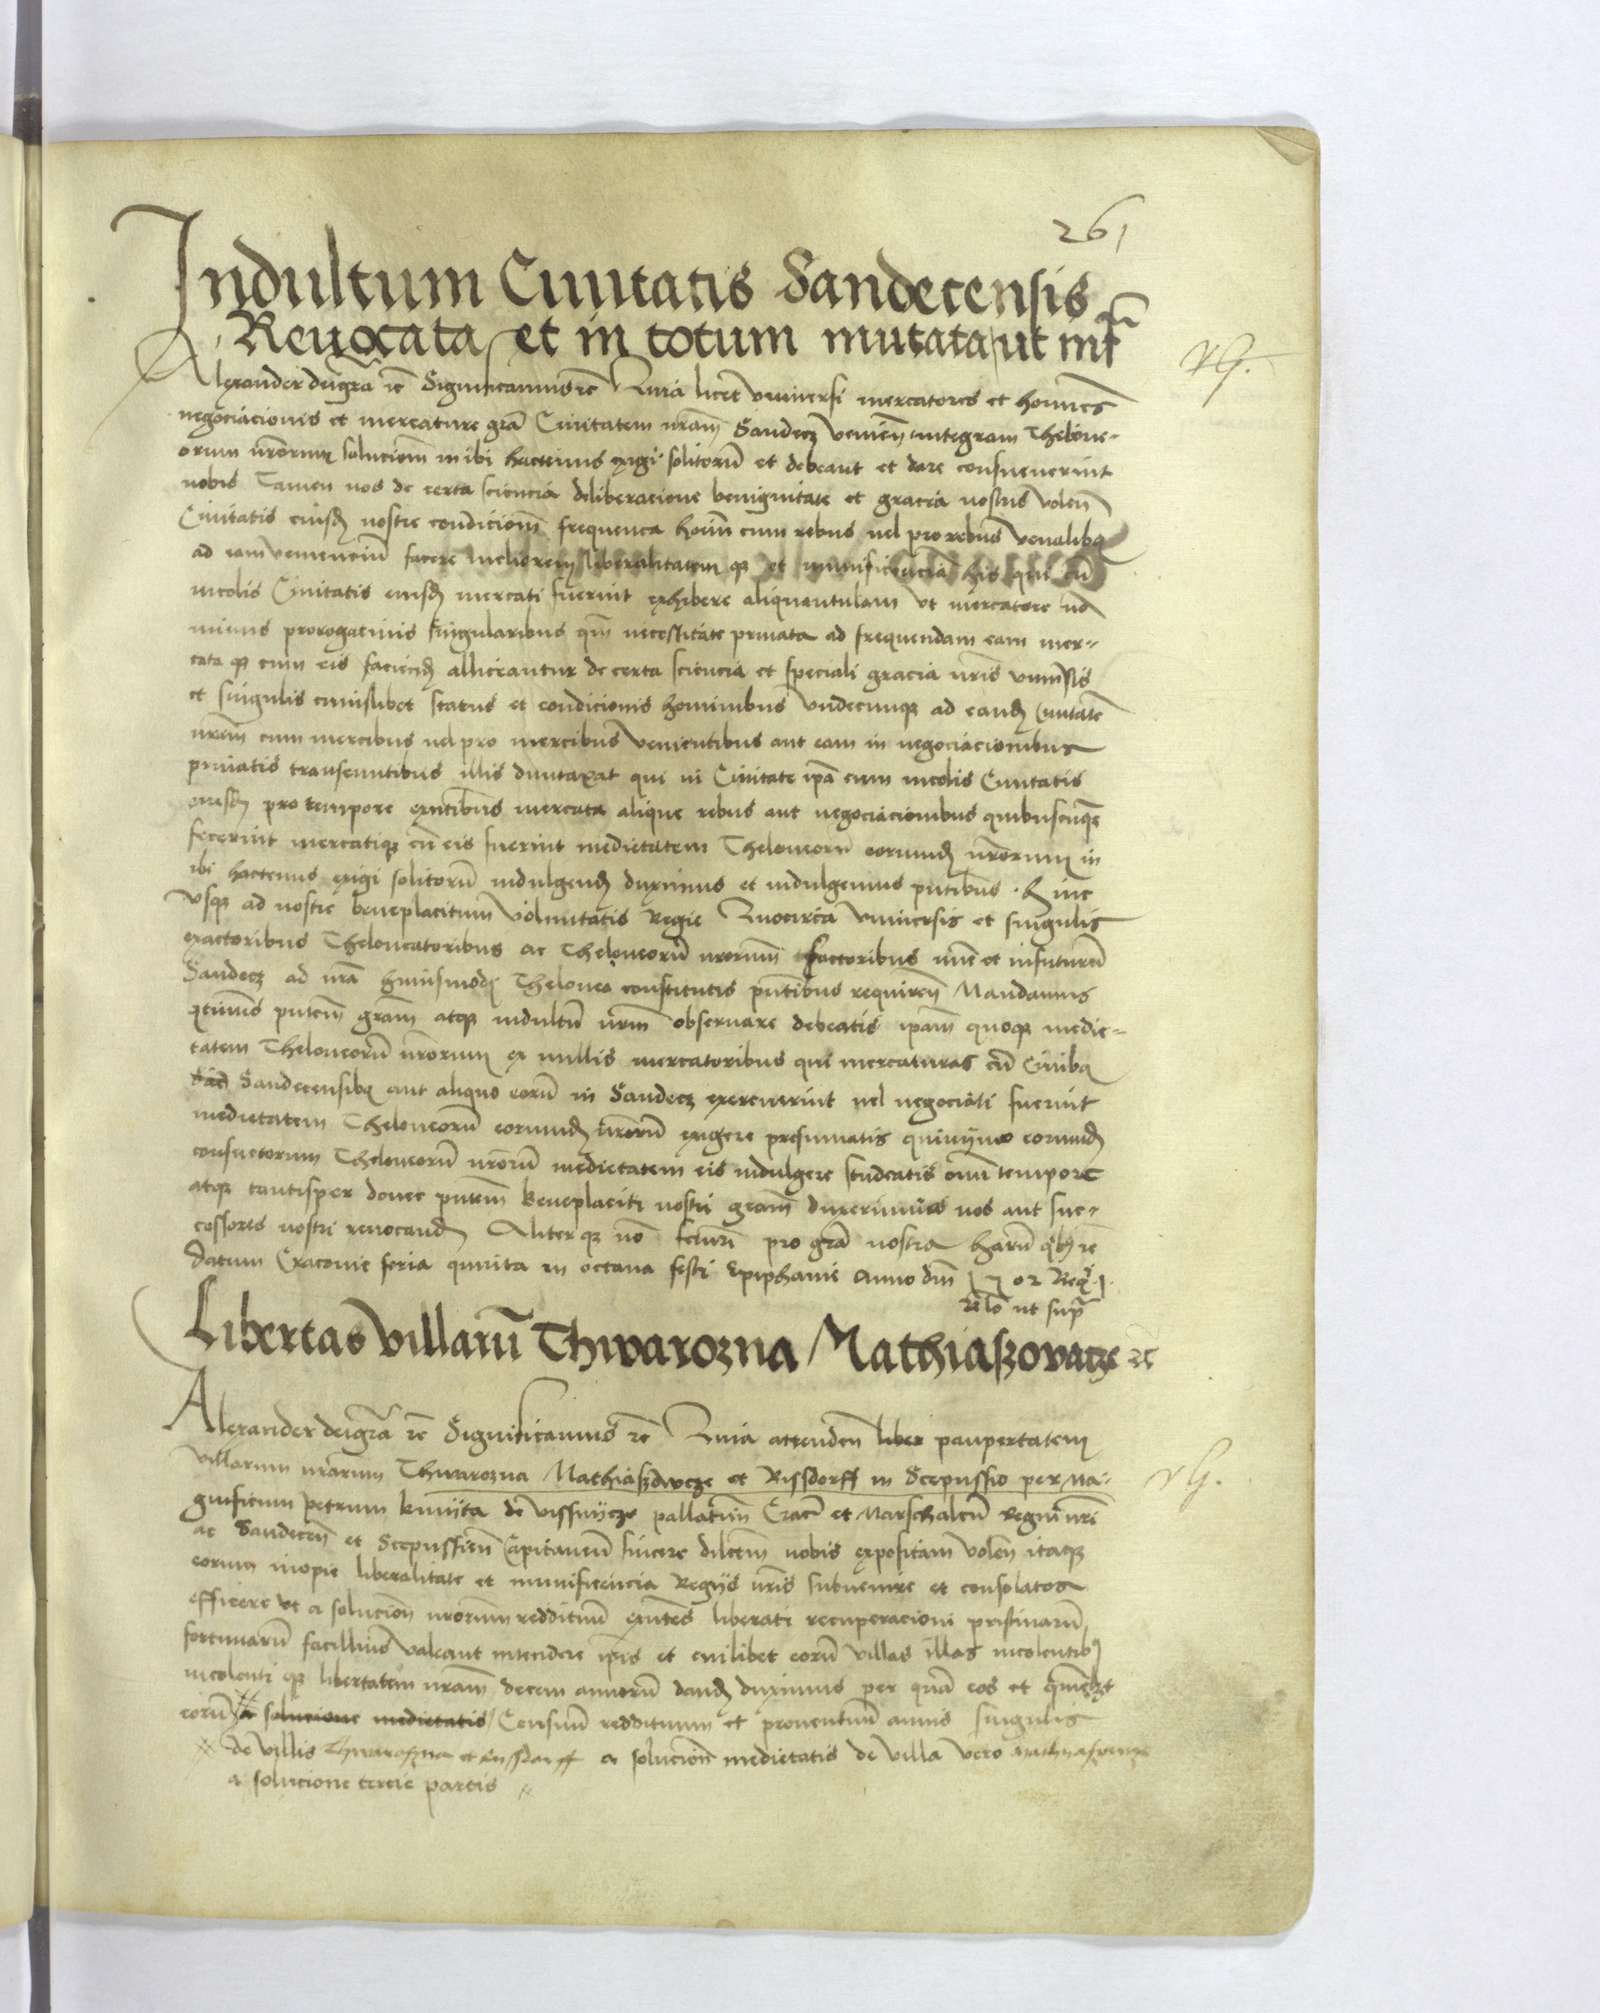 261
Indultum Civitatis Sandecensis
Revocata et in totum mutata ut inf
Alexander dei gra rc Significamus rc Quia licet universi mercatores et homines
negociacionis et mercature gra Civitatem nram Sandecz venien integram Thelone-
orum nrorum solucionem inibi hactenus exigi solitoru et debeant et dare consueverint
nobis Tamen nos de certa sciencia deliberacione benignitate et gracia nostris volen
Civitatis eiusd nostre condicionem frequencia homin cum rebus vel pro rebus venalibq
ad eam veneniu facere meliorem liberalitatem q et munificencia his qui cu
incolis Civitatis eiusd mercati fuerint exhibere aliquantulam ut mercatore no
minus prorogativis singularibus qm necessitate privata ad frequendam eam mer-
cata q cum eis faciend allicirantur de certa sciencia et speciali gracia nris universis
et singulis cuiuslibet status et condicionis hominibus undecunq ad eand Civitate
nram cum mercibus vel pro mercibus venientibus aut eam in negociacionibus
privatis transeuntibus illis duntaxat qui in Civitate ipa cum incolis Civitatis
eiusd pro tempore exntibus mercata aliqua rebus aut negociacionibus quibuscuqe
fecerint mercatiq cu eis fuerint medietatem Theloneoru eorumd nrorum in
ibi hactenus exigi solitoru indulgend duximus et indulgemus pntibus. Hinc
usq ad nostre beneplacitum voluntatis Regie Quocirca universis et singulis
exactoribus Theloneatoribus ac Theloneoru nrorum factoribus nunc et infuturu
Sandecz ad nra huiusmodi Thelonea constitutis pntibus requiren Mandamus
qtinus pntem gram atq indultu nrm observare debeatis ipam quoq medie-
tatem Theloneoru nrorum ex nullis mercatoribus qui mercaturas cu Civibq
Sandecensibq aut aliquo eoru in Sandecz exercuerint vel negociati fuerint
medietatem Theloneoru eorumd nroru exigere presumatis quinymo eorumd
consuetorum Theloneoru nroru medietatem eis indulgere studeatis omi tempore
atq tantisper donec pntem beneplaciti nostri gram duxerimus nos aut suc-
cessores nostri revocand Aliter q no facturi pro gra nostra haru qb rc
Datum Cracovie feria quinta in octava festi Epiphanie Anno dni 1502 Regi. 1.
Relo ut supra
Libertas villaru Thwarozna Mathiaszovcze rc
Alexander dei gra rc Significamus rc Quia attenden liber paupertatem
villarum nrarum Thwarozna Mathiaszdwcze et Rissdorff in Scepussio per Ma-
gnificum Petrum Kmyta de Vissnycze pallatinu Crac et Marschalcu Regni nri
ac Sandecen et Scepussien Capitaneu sincere dilctm nobis expositam volen itaq
eorum inopie liberalitate et munificencia Regys nris subvenire et consolatos
efficere ut a solucion nrorum reddituu exntes liberati recuperacioni pristinaru
fortunaru facillius valeant intendere ipis et cuilibet eoru villas illas incolentibq
incolenti q libertatem nram decem annoru dand duximus per qua eos et quemlzt
eoru a solucione medietatis Censuu reddituum et proventuu annis singulis
de villis Thwarozna et Rissdorff a solucion medietatis de villa vero Mathyaszowcze
a solucione tercie partis